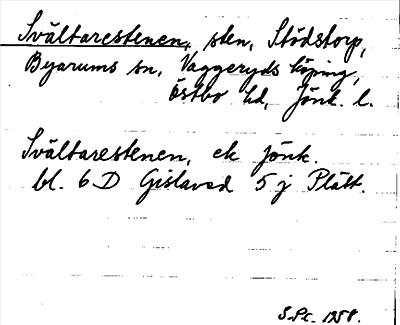 Svältarestenen, sten, Stödstorp,
Byarums sn, Vaggeryds köping,
Östbo hd, Jönk. l.
Svältarestenen, ek Jönk.
bl. 6 D Gislaved 5 j Plått.
1958.